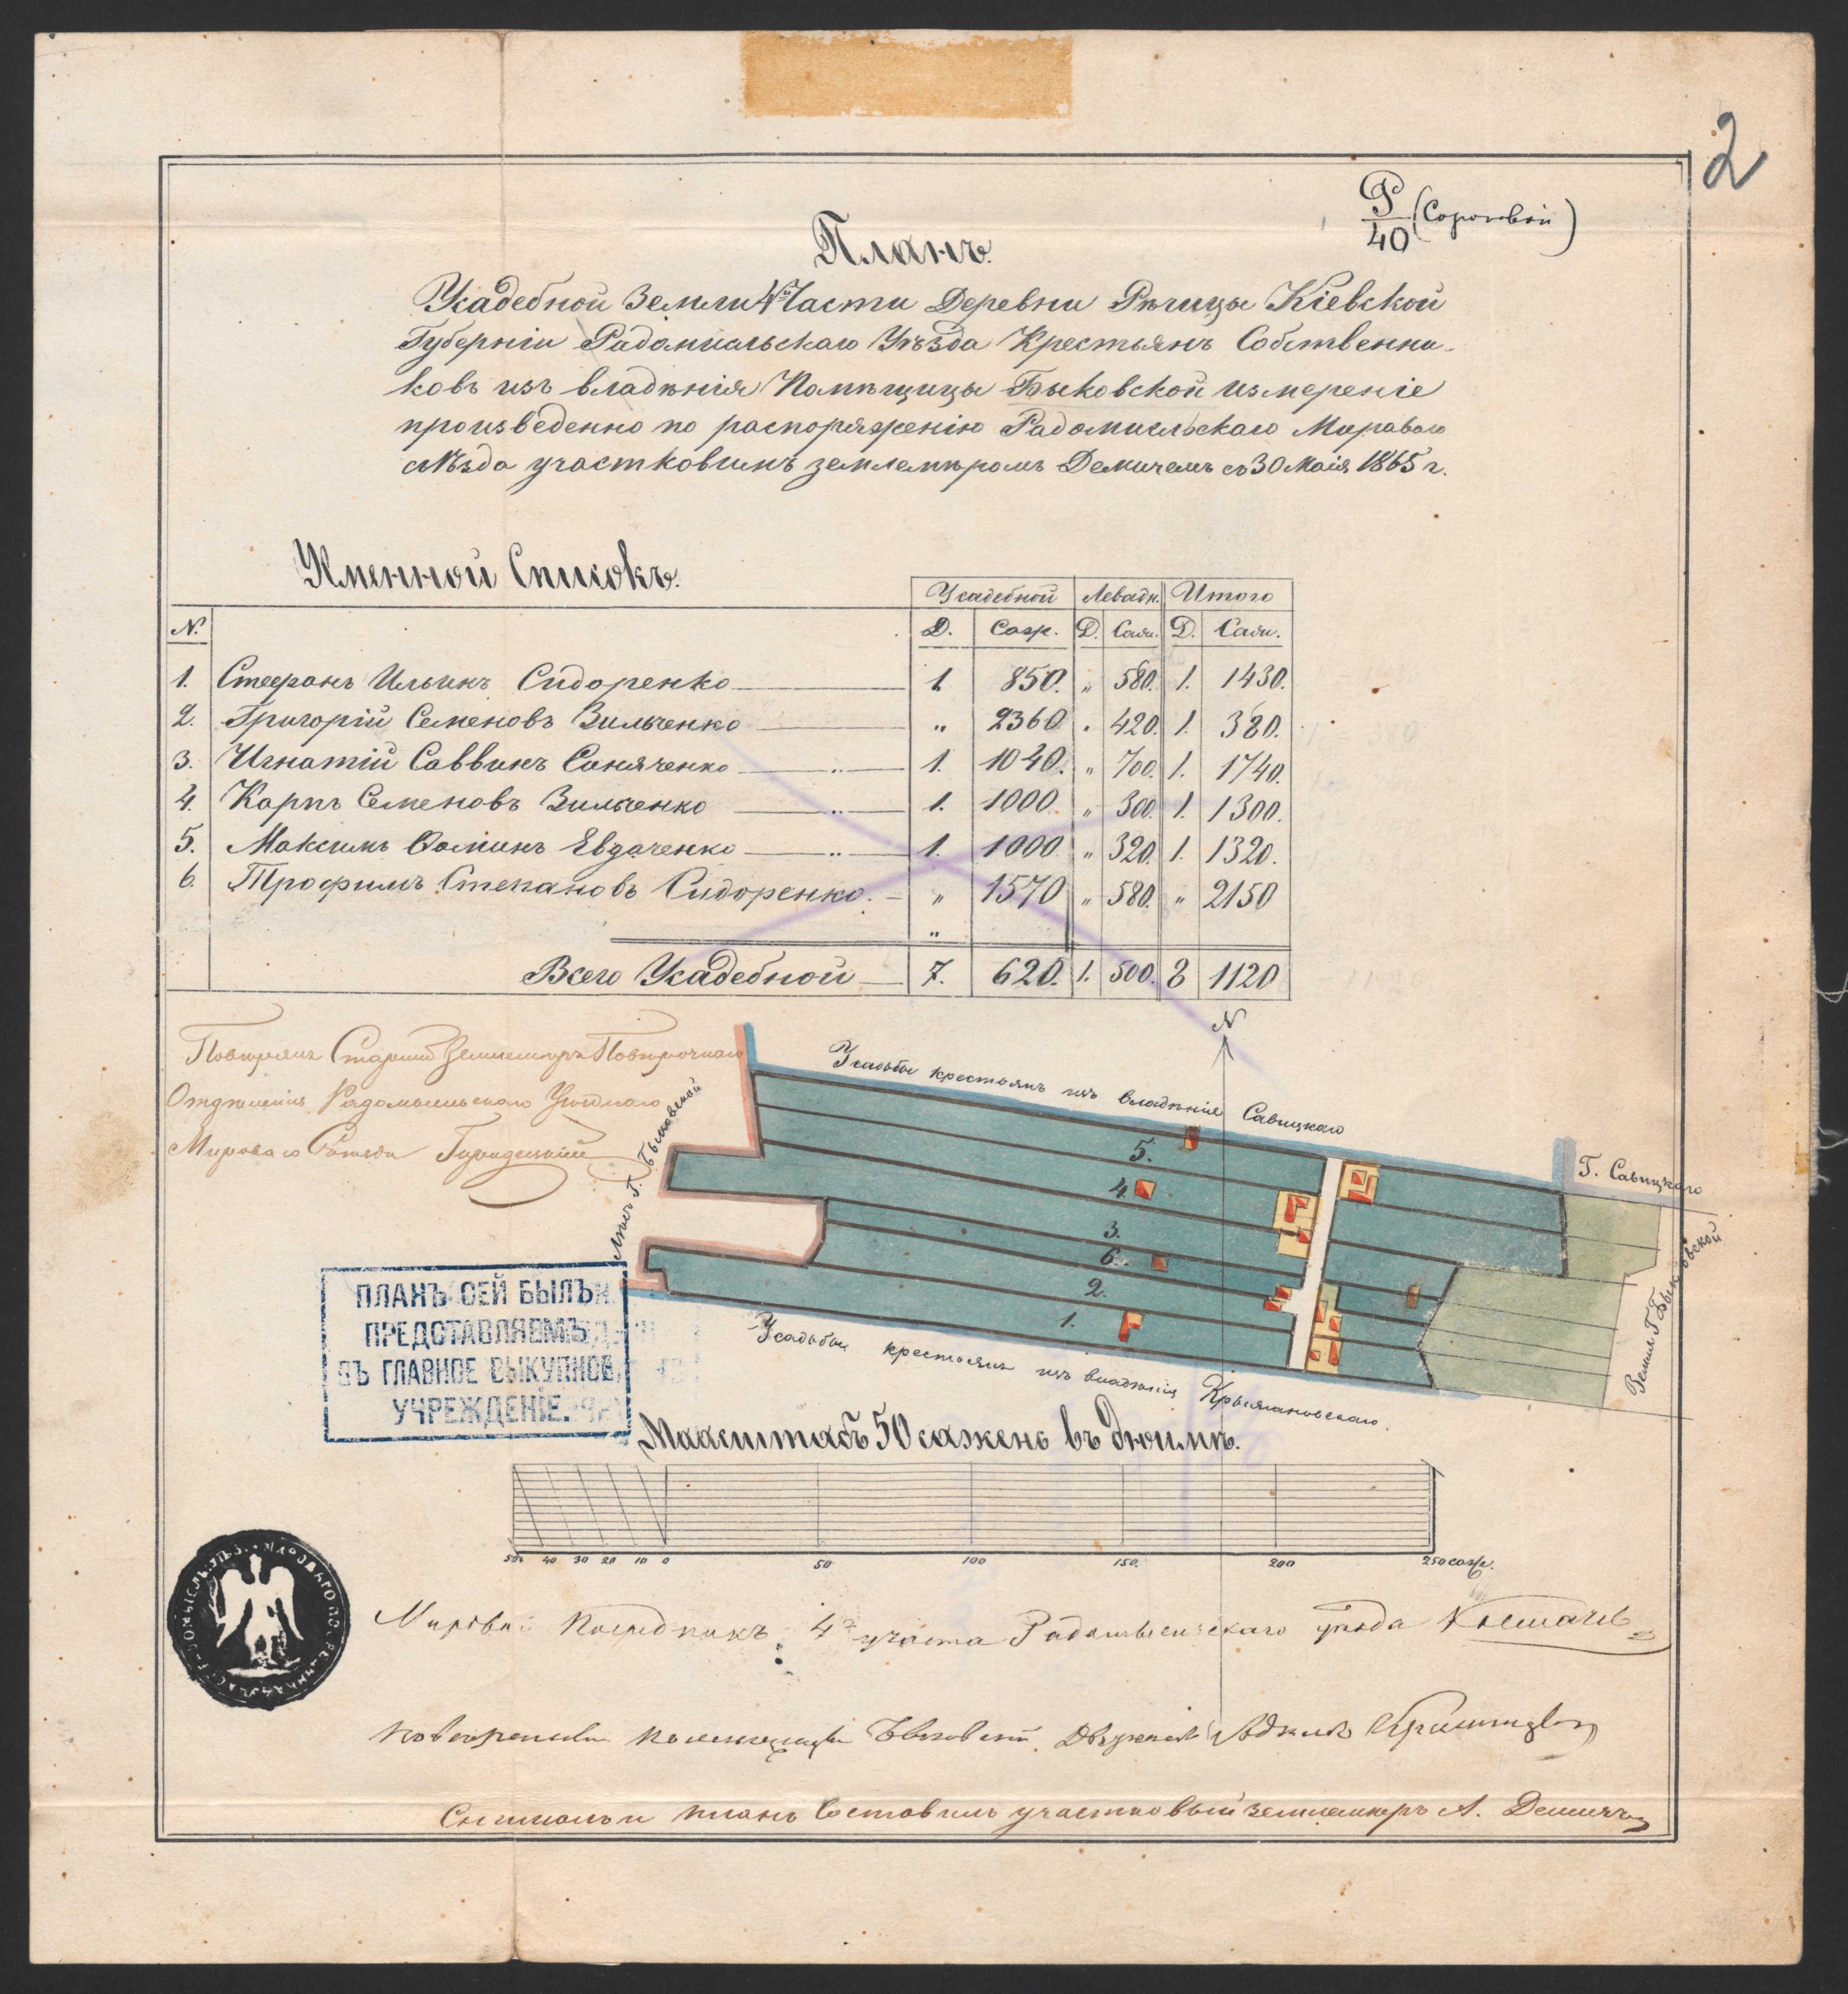 2
Р/40 (Сороковой)
Планъ.
Усадебной Земли 4й Части Деревни Рѣчицы Кіевской
Губерніи Радомысльскаго Уѣзда Крестьянъ Собственни-
ковъ изъ владѣнія Помѣщицы Быковской измереніе
произведенно по распоряженію Радомысльскаго Мироваго
съѣзда участковымъ землемѣромъ Демичемъ съ 30 Маія 1865 г.
Именной Списокъ.
Усадебной Левадн. Итого
N. Д. Саж. Д. Саж. Д. Саж.
1. Стефанъ Ильинъ Сидоренко 1. 850. " 580. 1. 1430.
2. Григорій Семеновъ Зильченко " 2360 " 420. 1. 380.
3. Игнатій Саввинъ 1. 1040. " 700. 1. 1740.
4. Карпъ Семеновъ Зильченко " 1. 1000. " 300. 1. 1300.
5. Максимъ Ѳоминъ " 1. 1000 " 320. 1. 1320.
6. Трофимъ Степановъ Сидоренко. " 1570 " 580. " 2150
"
Всего Усадебной 7. 620. 1. 500. 8 1120
N
Повѣрялъ Старшій Землемѣръ Повѣрочнаго
Отдѣленія Радомысльскаго Уѣзднаго
Мироваго Съѣзда
Усадьбы крестьянъ изъ владѣніе Савицкаго
Г. Савицкаго
Лѣсъ Г. Быковской
Земля Г. Быковской
5.
4.
3.
6.
2.
1.
Усадьбы крестьянъ изъ владѣнія
ПЛАНЪ СЕЙ БЫЛЪ
ПРЕДСТАВЛЯЕМЪ
ВЪ ГЛАВНОЕ ВЫКУПНОЕ
УЧРЕЖДЕНІЕ.
Маасштабъ 50 сажень въ дюймѣ.
50 40 30 20 10 0 50 100 150. 200 250 саж.
Мировой Посредникъ 4го участка Радомысльскаго уѣзда
Снималъ и планъ Составилъ участковый землемѣръ А. Демичъ